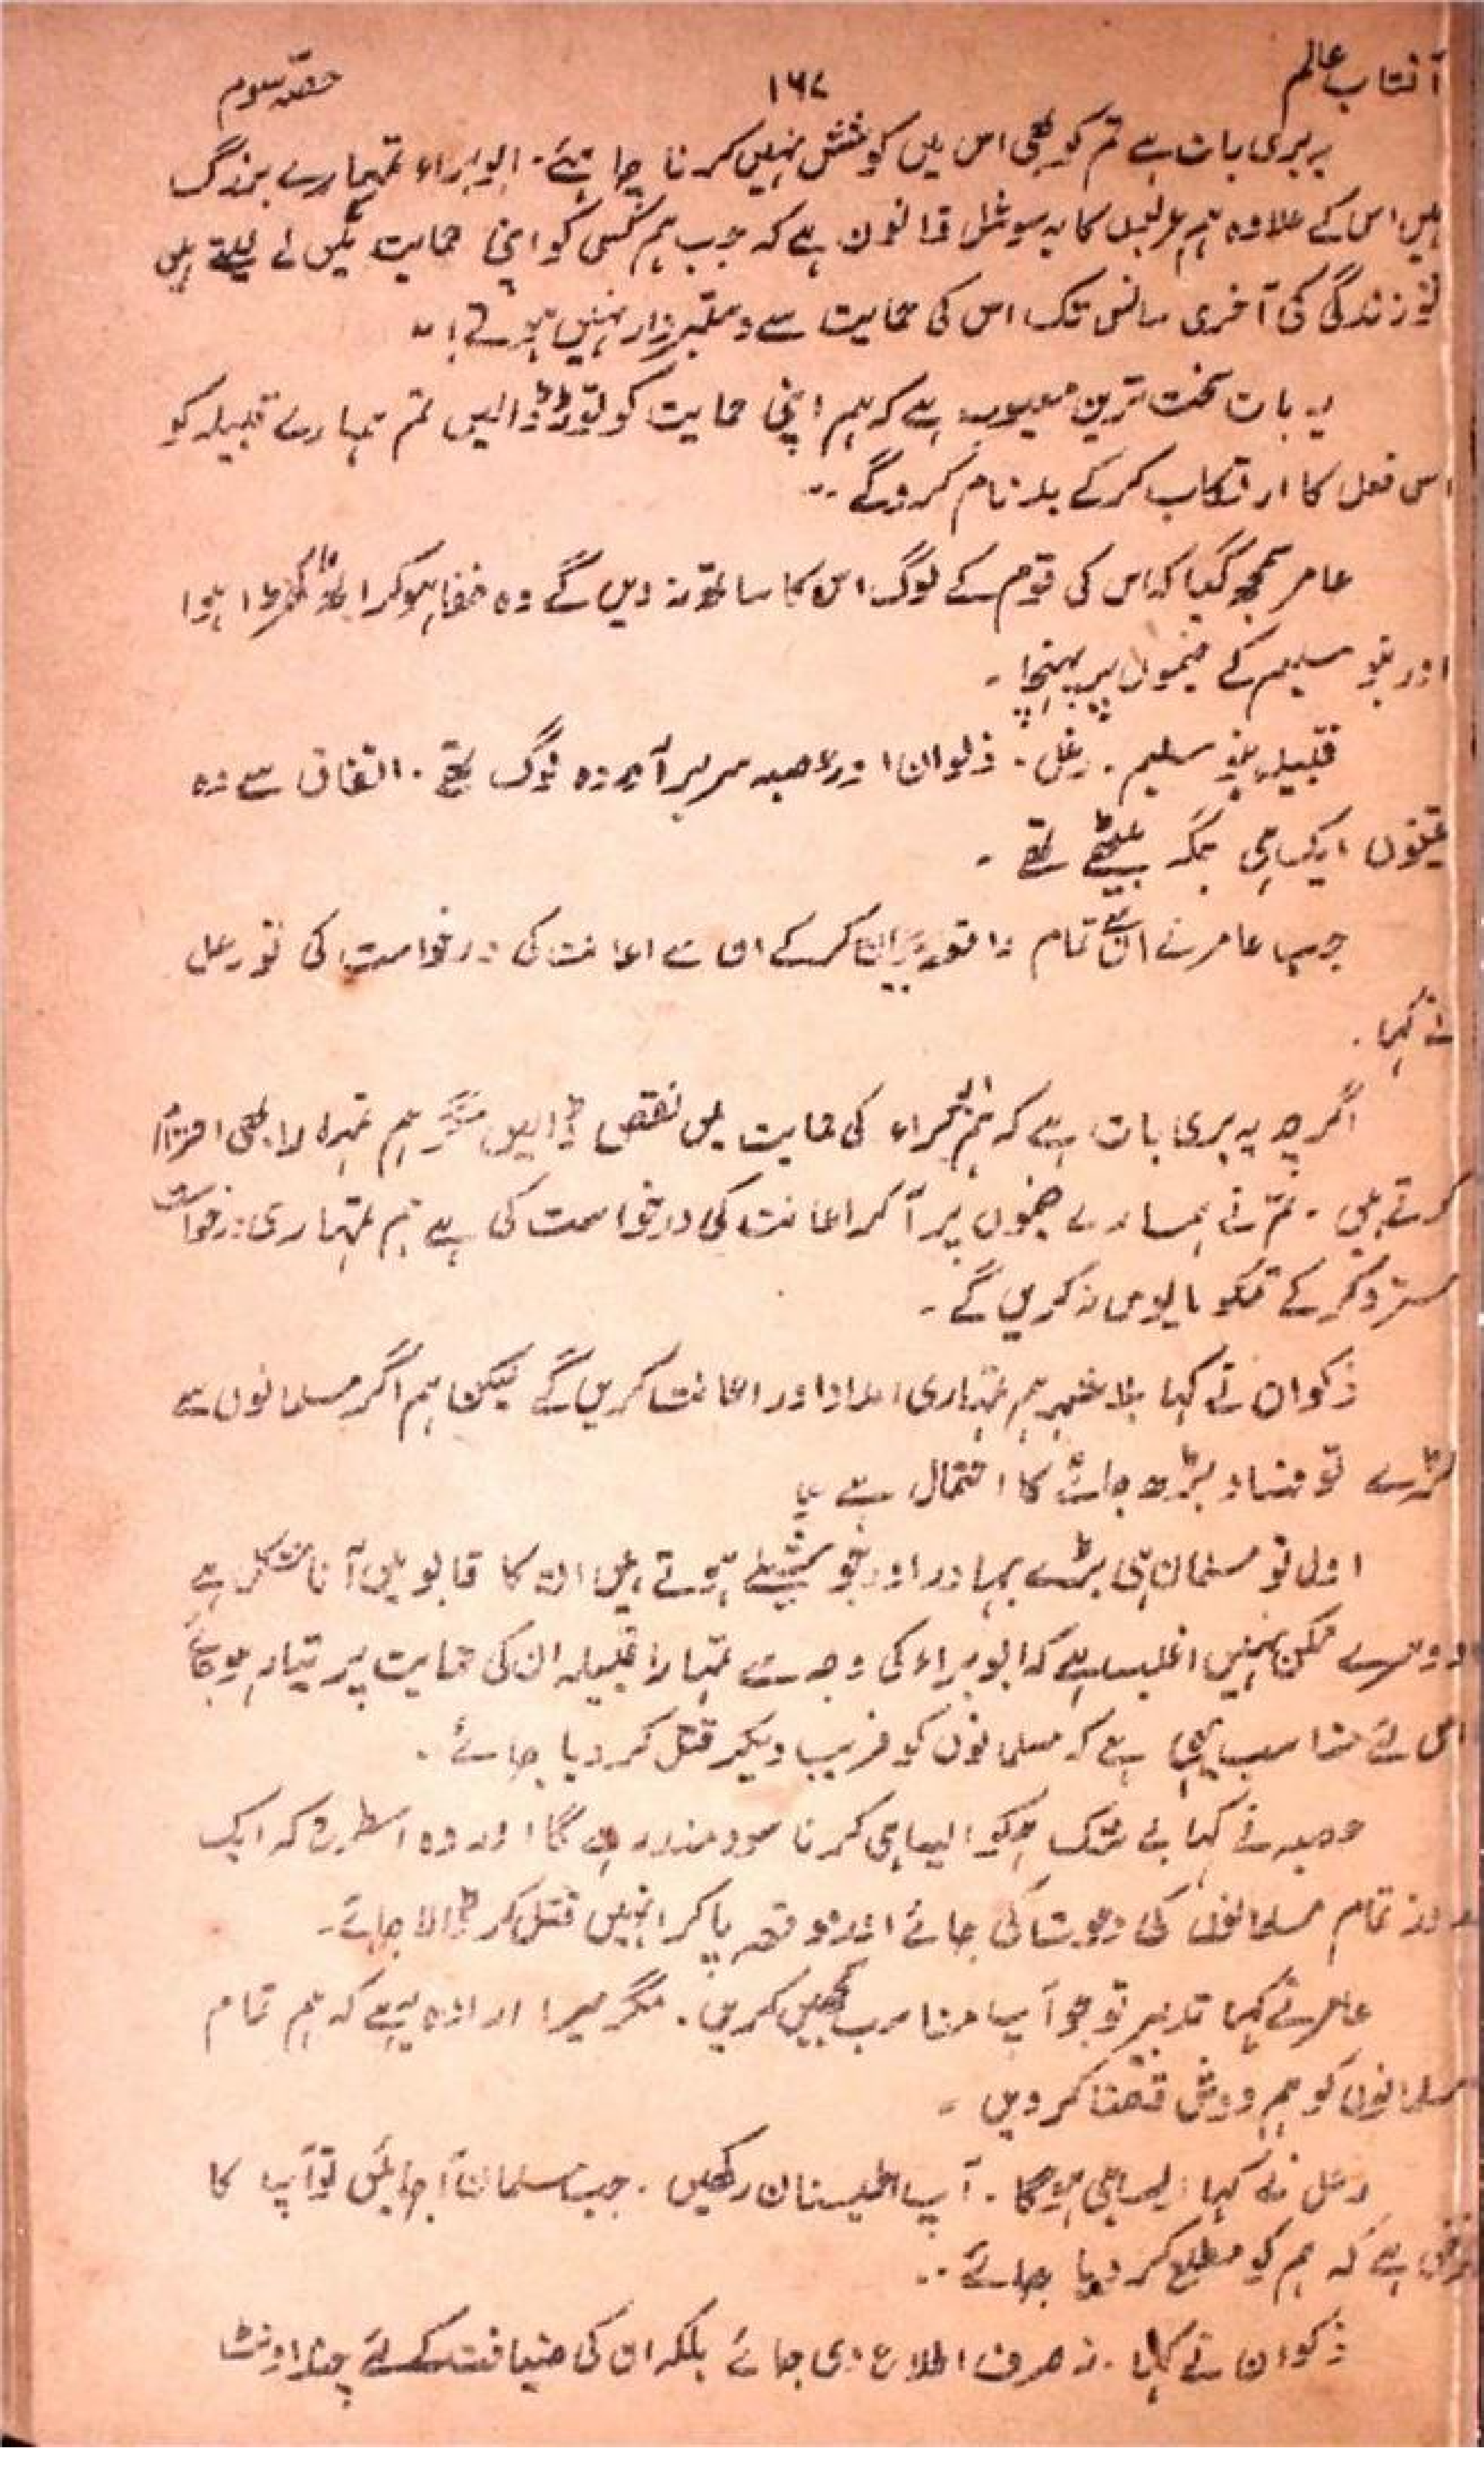 آفتاب عالم ۱۶۷ حصہ سوم
یہ بری بات ہے تم کو بھی اس میں کوشش نہیں کرنا چاہئے۔ ابو براء تمہارے بزرگ
ہیں اس کے علاوہ ہم عربوں کا یہ سوشل قانون ہے کہ جب ہم کسی کو اپنی حمایت میں لے لیتے ہیں
تو زندگی کی آخری سانس تک اس کی حمایت سے دستبردار نہیں ہوتے!"
یہ بات سخت ترین معیوب ہے کہ ہم اپنی حمایت کو توڑ ڈالیں تم ہمارے قبیلہ کو
اس فعل کا ارتکاب کر کے بدنام کرو گے۔"
عامر سمجھ گیا کہ اس کی قوم کے لوگ اس کا ساتھ نہ دیں گے وہ خفا ہو کر اٹھ کھڑا ہوا
اور بنو سلیم کے خیموں پر پہنچا۔
قبیلہ بنو سلیم۔ رعل۔ ذکوان اور عصیہ سربرآوردہ لوگ تھے۔ اتفاق سے وہ
تینوں ایک ہی جگہ بیٹھے تھے۔
جب عامر نے ان سے تمام واقعہ بیان کر کے ان سے اعانت کی درخواست کی تو رعل
نے کہا۔
اگرچہ یہ بری بات ہے کہ ہم ابو براء کی حمایت میں نقص ڈالیں مگر ہم تمہارا بھی احترام
کرتے ہیں۔ تم نے ہمارے خیموں پر آ کر اعانت کی درخواست کی ہے ہم تمہاری درخواست
مسترد کر کے تمکو مایوس نہ کریں گے۔
ذکوان نے کہا بلا شبہ ہم تمہاری امداد اور اعانت کریں گے لیکن ہم اگر مسلمانوں سے
لڑے تو فساد بڑھ جانے کا احتمال ہے۔
اول تو مسلمان ہی بڑے بہادر اور جوشیلے ہوتے ہیں ان کا قابو میں آنا مشکل ہے
دوسرے ممکن نہیں اغلب ہے کہ ابو براء کی وجہ سے تمہارا قبیلہ ان کی حمایت پر تیار ہو جائے
اس لئے مناسب یہی ہے کہ مسلمانوں کو فریب دیکر قتل کر دیا جائے۔
عصیہ نے کہا بے شک ہمکو ایسا ہی کرنا سودمند رہے گا اور وہ اسطرح کہ ایک
روز تمام مسلمانوں کی دعوت کی جائے اور موقعہ پا کر انہیں قتل کر ڈالا جائے۔
عامر نے کہا تدبیر تو جو آپ مناسب سمجھیں کریں۔ مگر میرا ارادہ یہ ہے کہ ہم تمام
مسلمانوں کو ہم دوش قضا کر دیں۔
رعل نے کہا ایسا ہی ہوگا۔ آپ اطمینان رکھیں۔ جب مسلمان آ جائیں تو آپ کا
فرض ہے کہ ہم کو مطلع کر دیا جائے۔
ذکوان نے کہا۔ نہ صرف اطلاع دی جائے بلکہ ان کی ضیافت کے لئے چند اونٹ